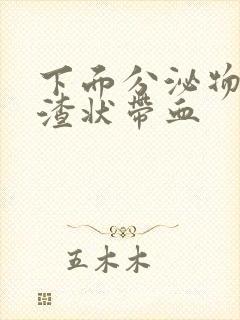 下而分泌物
渣状带血
五木木